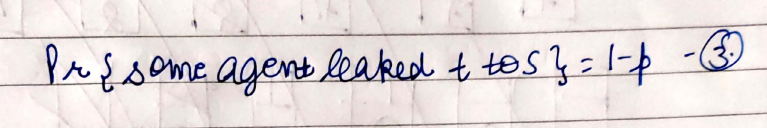 Pr { some agent leaked t to S } = 1-p - ③.